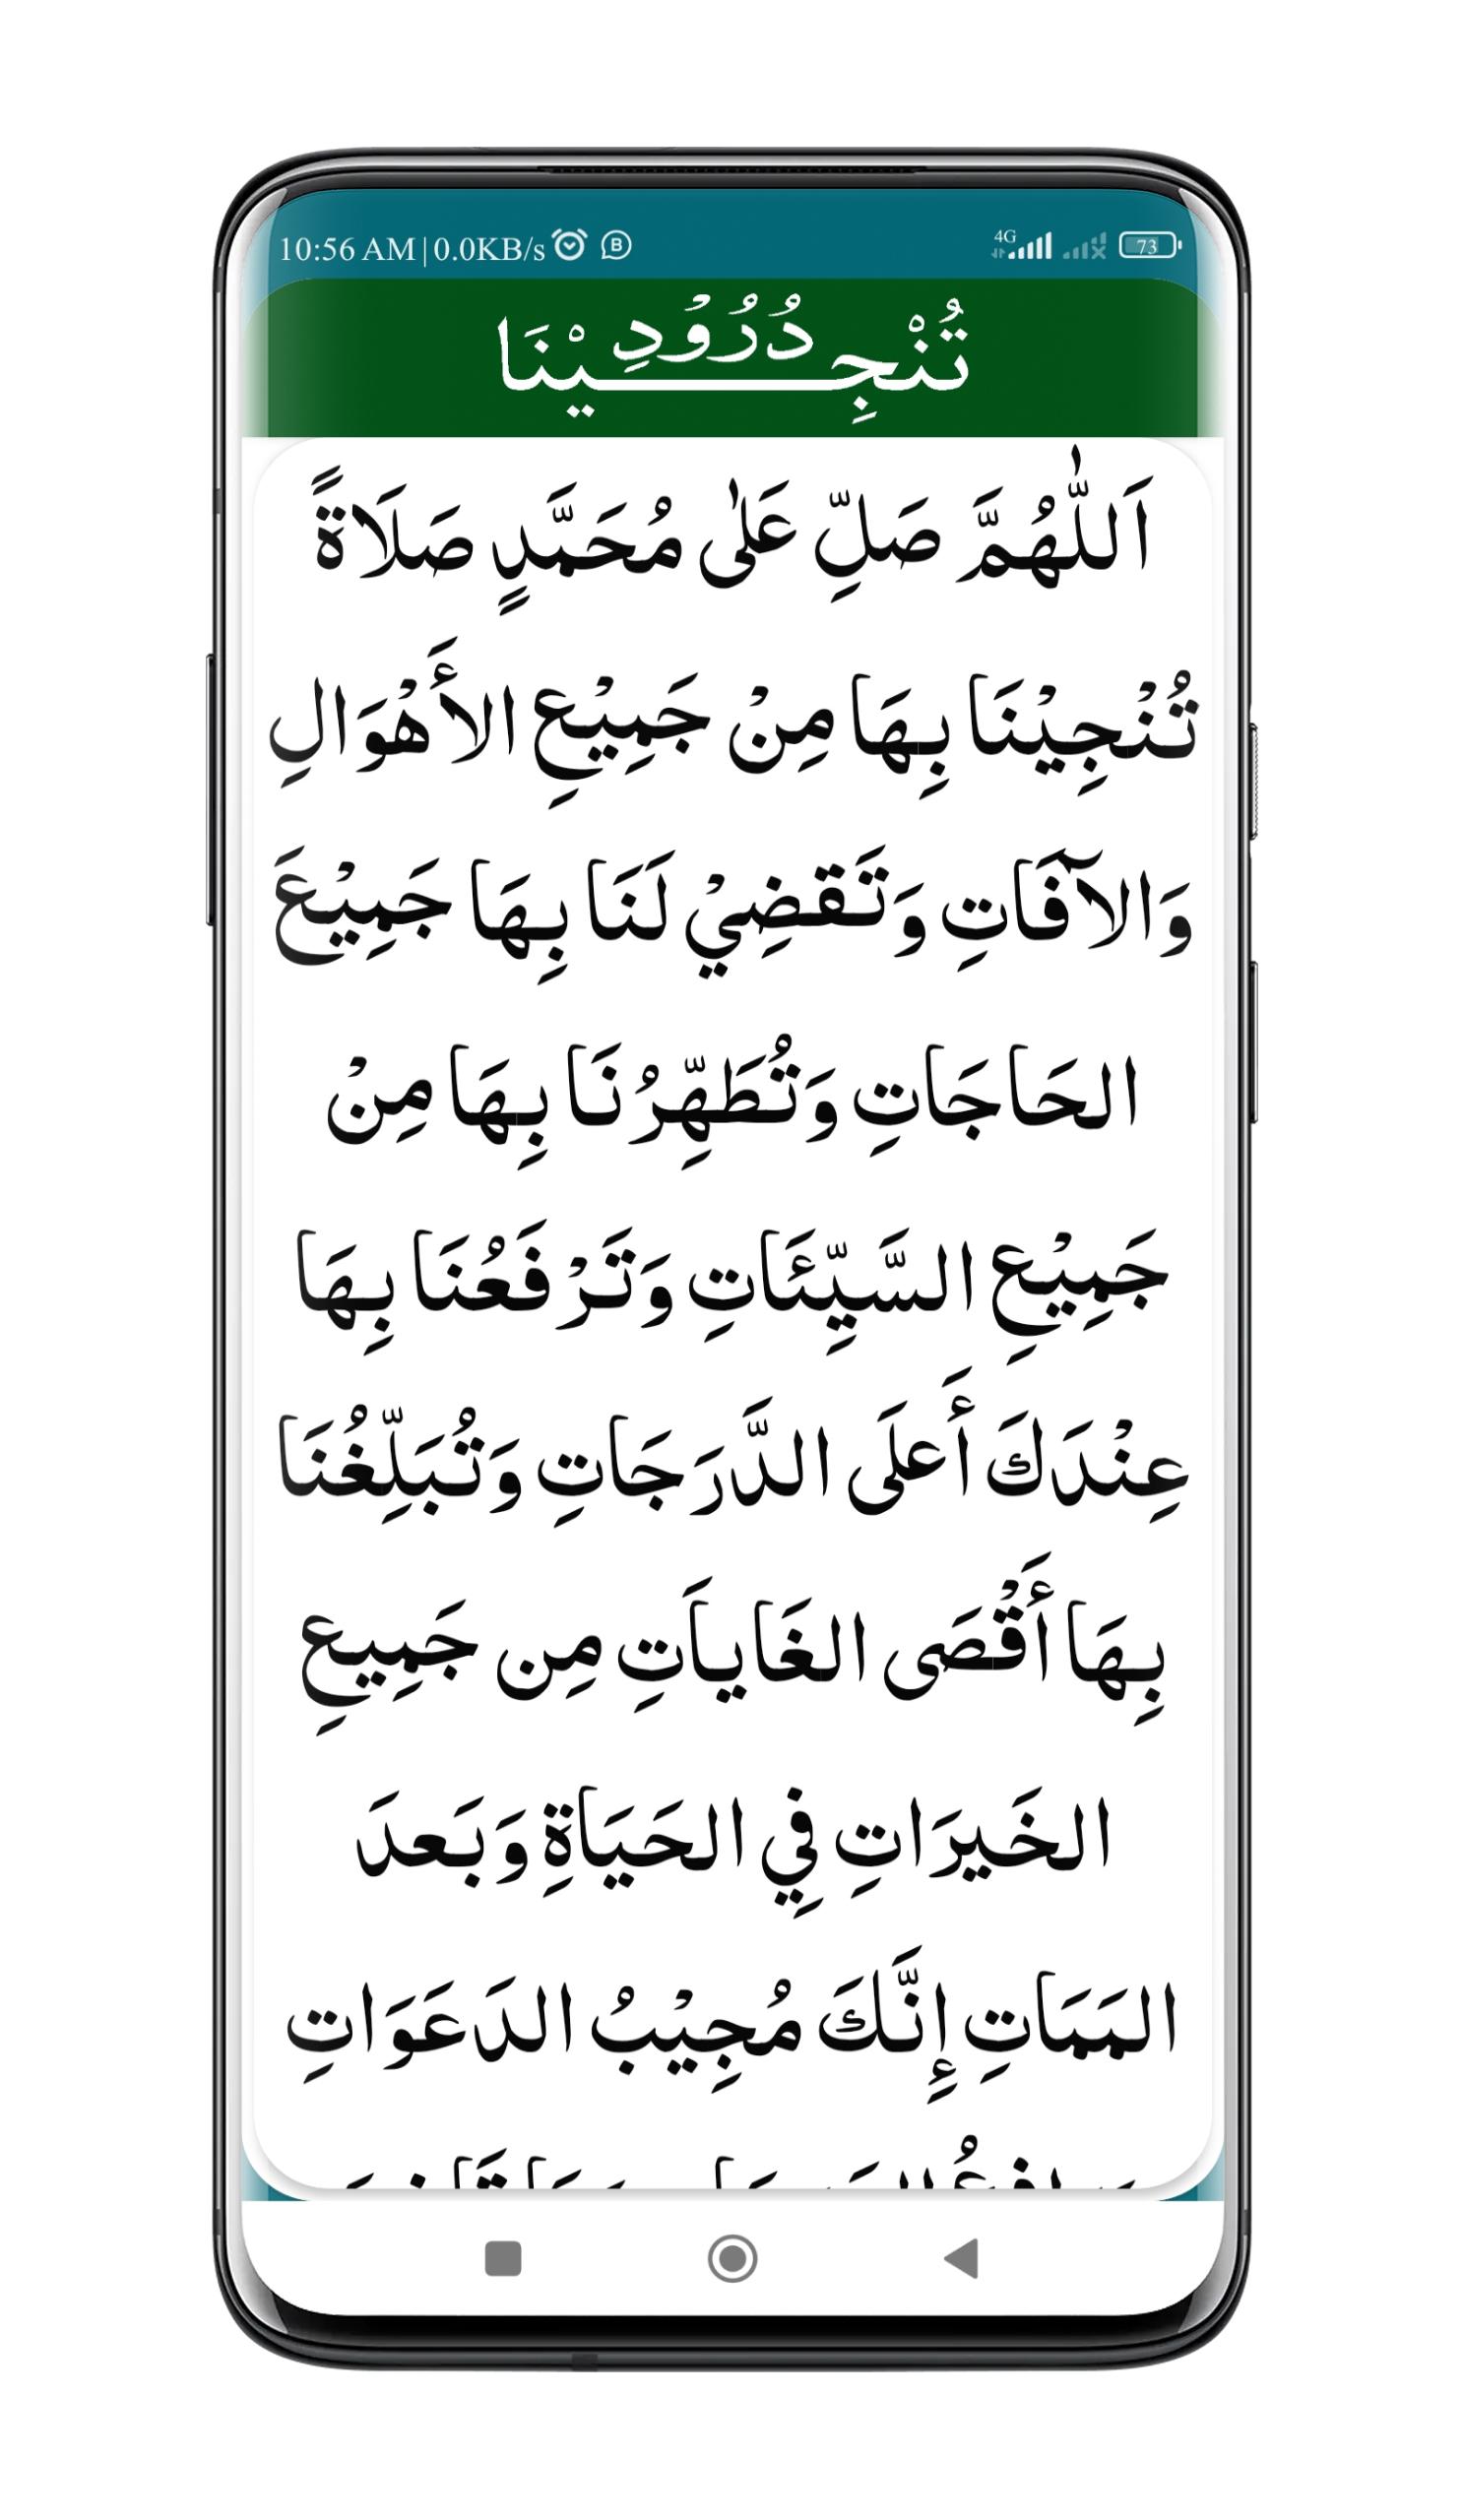 10:56 AM | 0.0KB/s
4G 73
دُرُوُدِ تُنْجِيْنَا
اَللّٰهُمَّ صَلِّ عَلٰى مُحَمَّدٍ صَلَاةً
تُنْجِيْنَا بِهَا مِنْ جَمِيْعِ الأَهْوَالِ
وَالآفَاتِ وَتَقضِيْ لَنَا بِهَا جَمِيْعَ
الحَاجَاتِ وَتُطَهِّرُنَا بِهَا مِنْ
جَمِيْعِ السَّيِّئَاتِ وَتَرْفَعُنَا بِهَا
عِنْدَكَ أَعلَى الدَّرَجَاتِ وَتُبَلِّغُنَا
بِهَا أَقْصَى الغَايَاتِ مِن جَمِيعِ
الخَيرَاتِ فِي الحَيَاةِ وَبَعدَ
المَمَاتِ إِنَّكَ مُجِيْبُ الدَعَوَاتِ